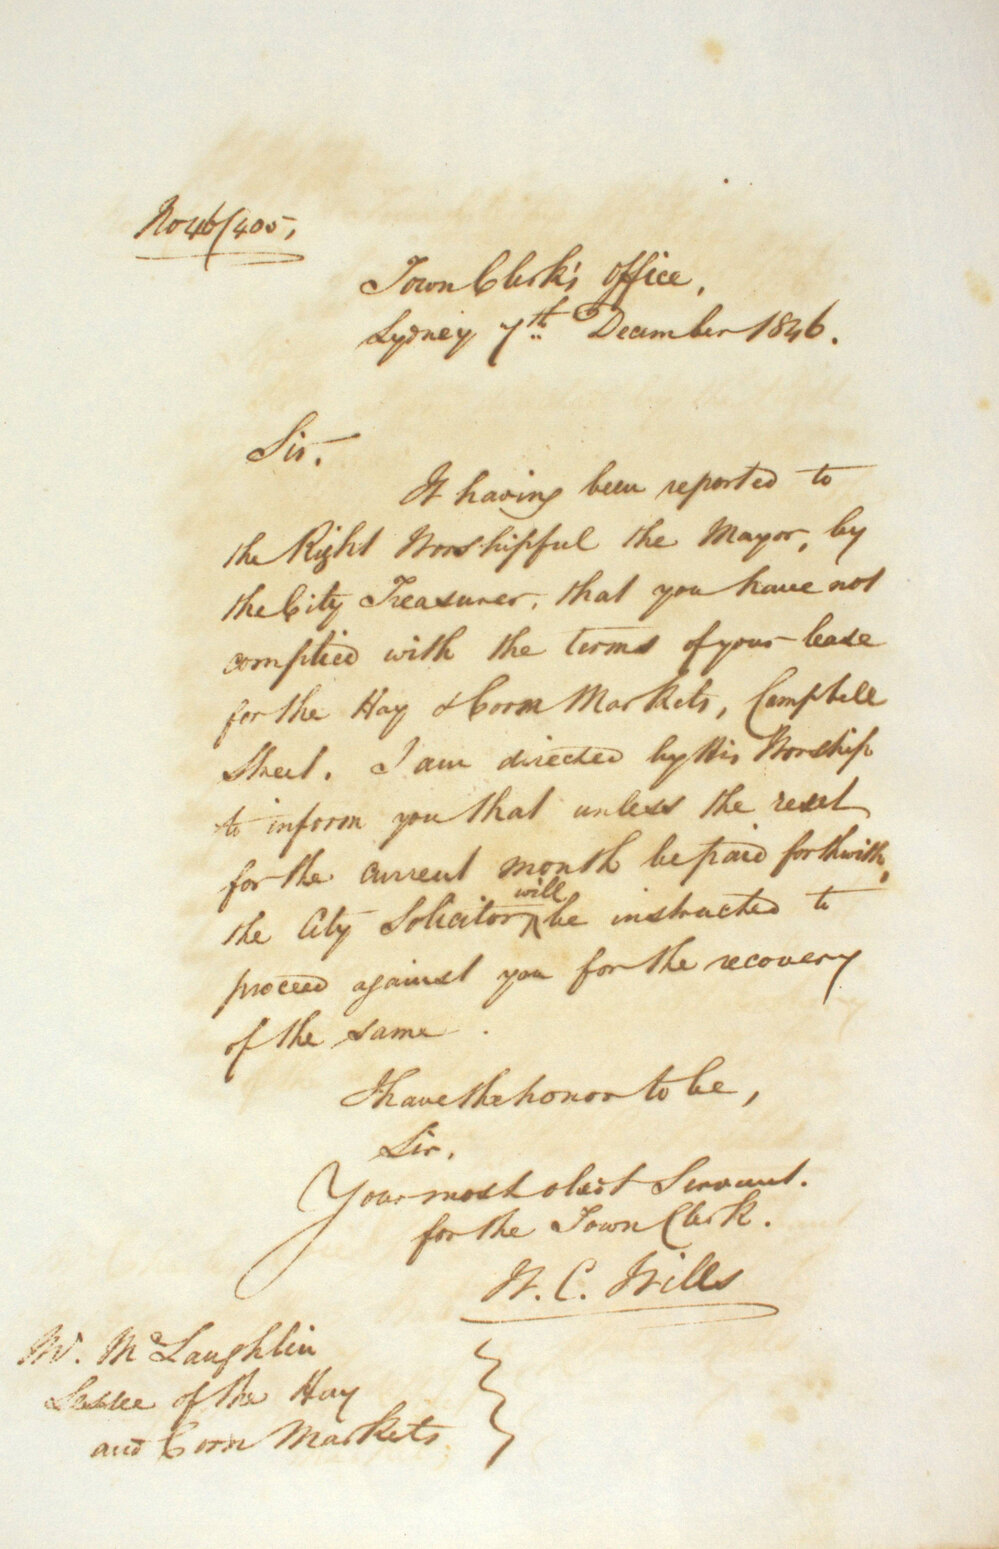 No 46/405,
Town Clerk's Office,
Sydney 7th December 1846.
Sir.
It having been reported to
the Right Worshipful the Mayor, by
the City Treasurer, that you have not
complied with the terms of your lease
for the Hay & Corn Markets, Campbell
Street. I am directed by His Worship
to inform you that unless the rent
for the current month be paid forthwith,
will
the City Solicitor ^ be instructed to
proceed against you for the recovery
of the same.
I have the honor to be,
Sir.
Your most obedt Servant.
for the Town Clerk.
W. C. Wills
Mr. McLaughlin
Lessee of the Hay
and Corn Markets